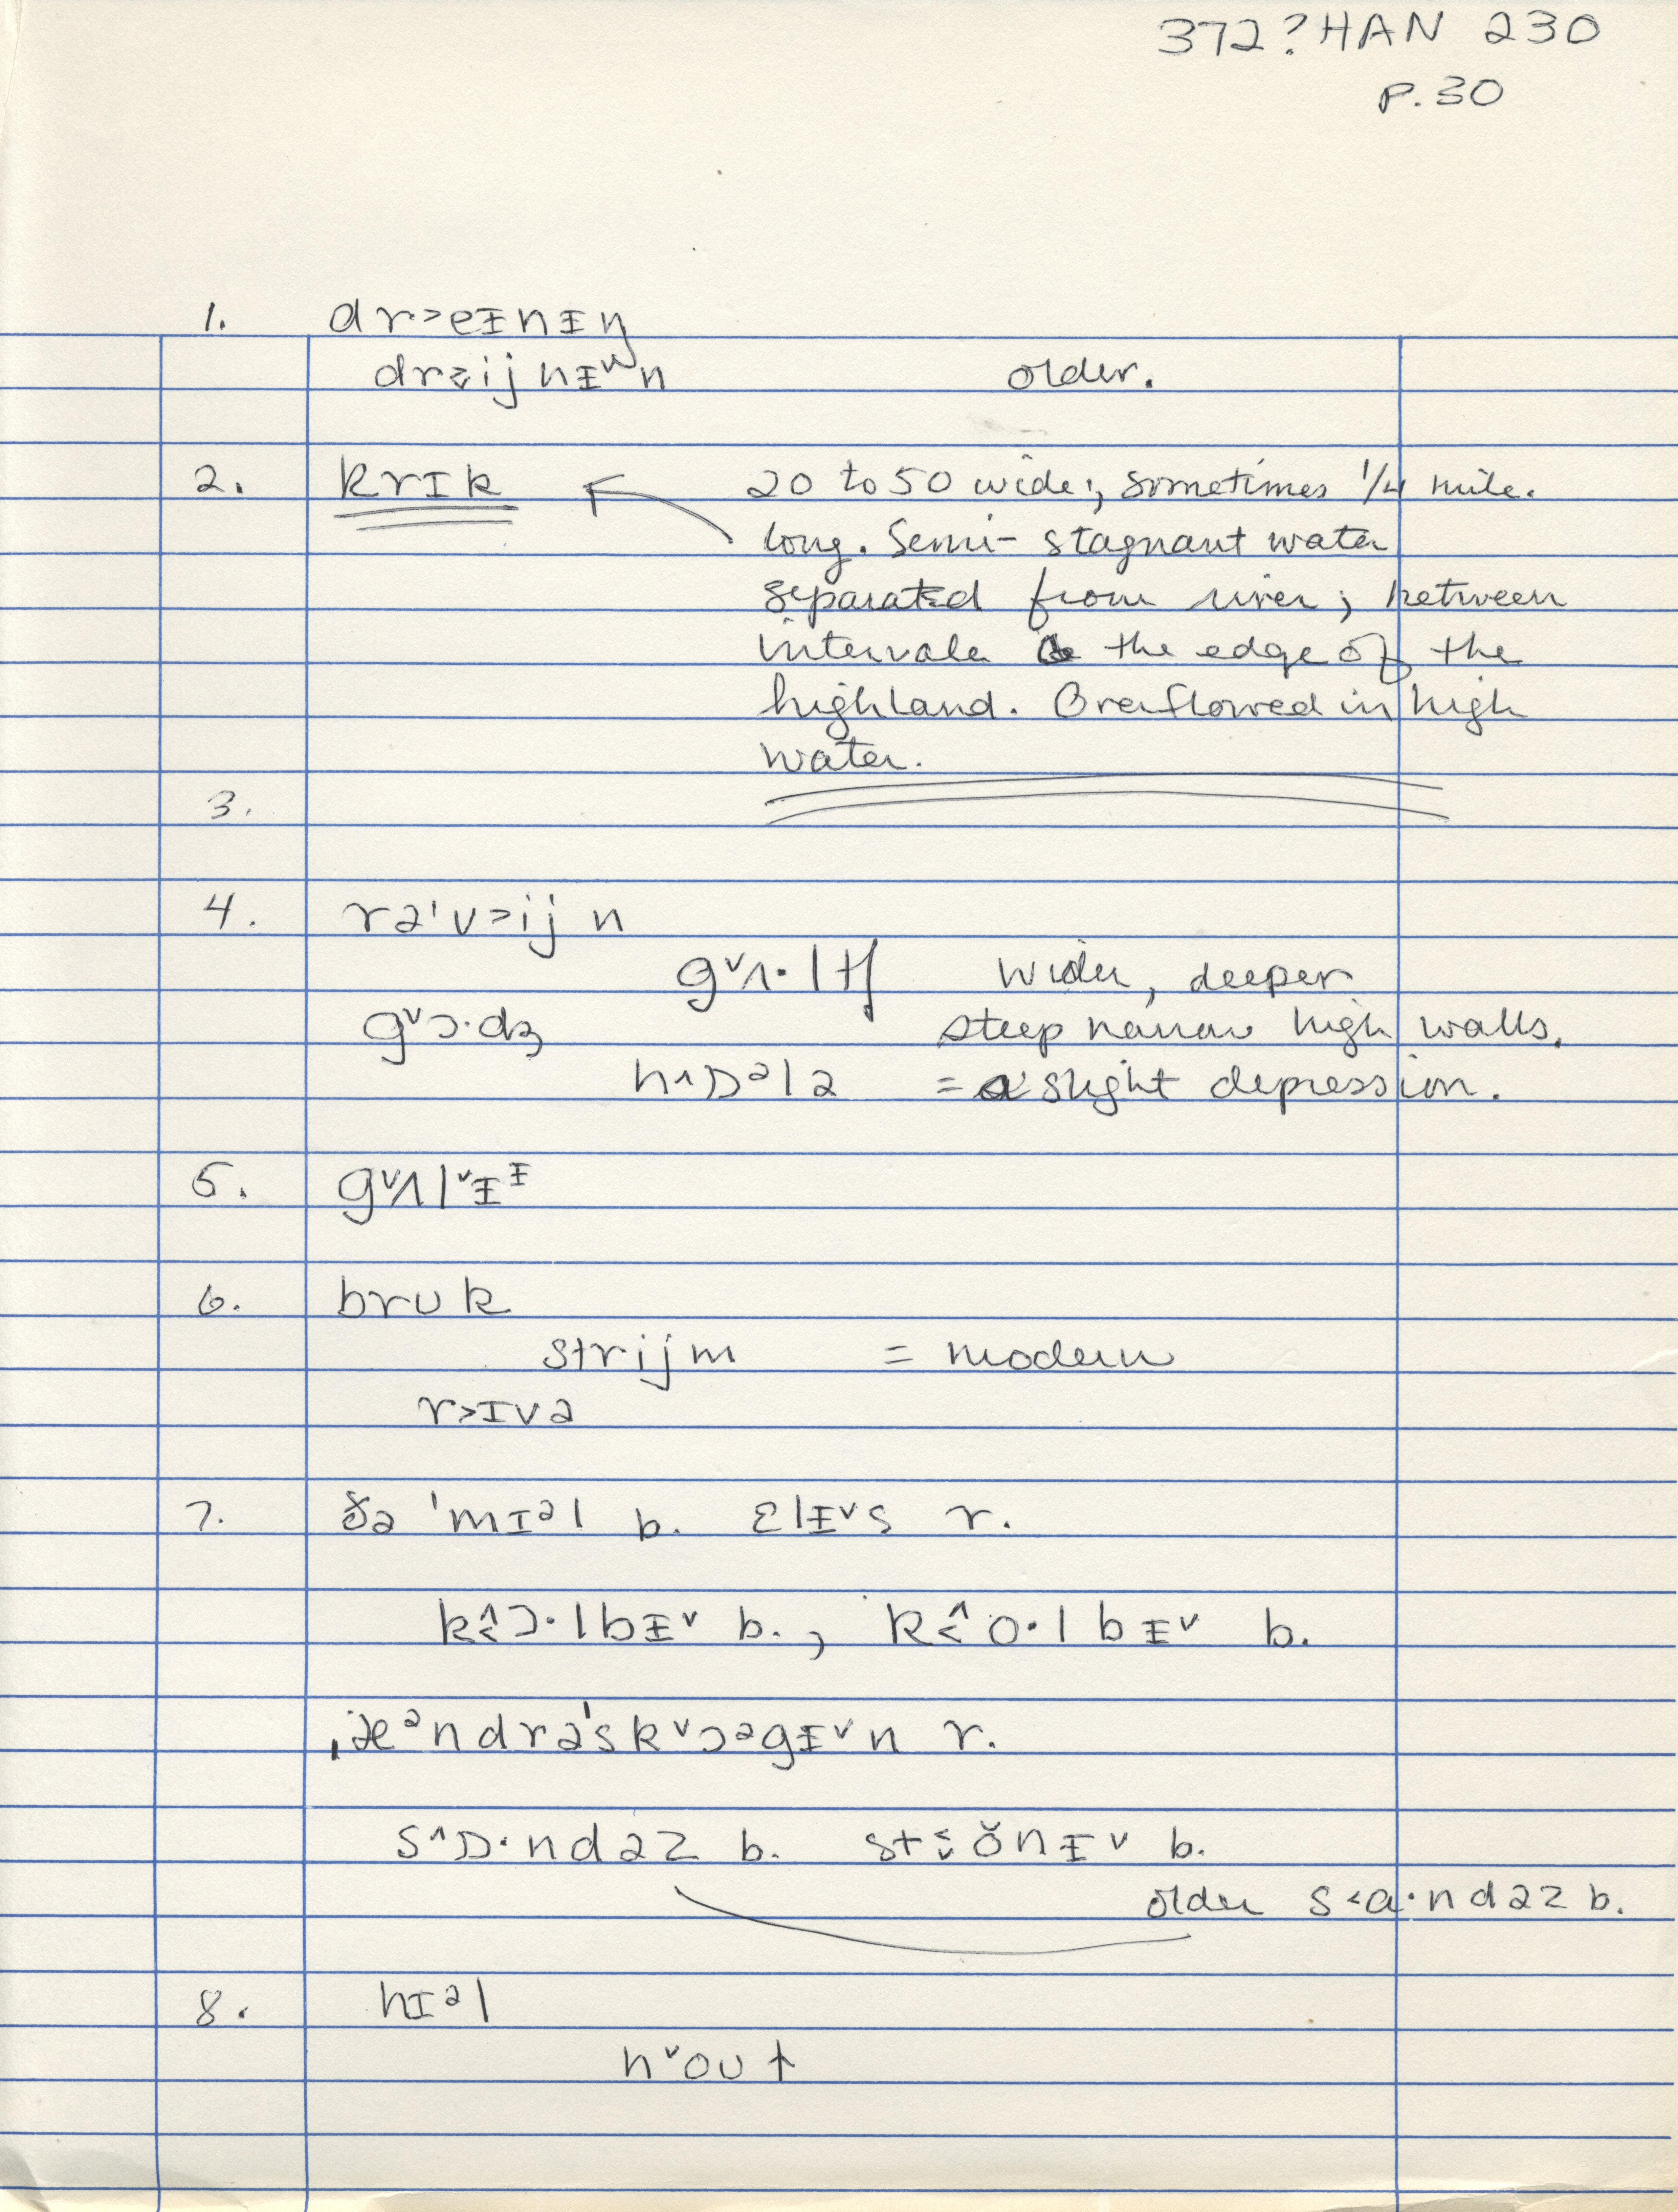 372?HAN 230
P.30
1. dr˃eᵻnᵻŋ
dr⪚ijnᵻ˅n older.
2. krɪk 20 to 50 wide;, sometimes 1/4 mile.
long. Semi- stagnant water
separated from river; between
intervale & the edge of the
highland. Overflowed in high
water.
3.
4. rə'v˃ijn
g˅ʌ·ltʃ wider, deeper
g˅ɔ·dʒ steep narrow high walls.
h˄ɒᵊlə = a slight depression.
5. g˅ʌl˅ᵻᶧ
6. brʊk
strijm = modern
r˃ɪvə
7. ðə 'mɪᵊl b. ɛlᵻ˅s r.
k˄˂ɔ·lbᵻ˅ b., k˂˄o·lbᵻ˅ b.
ˌæᵊndrə'sk˅ɔəgᵻ˅n r.
s˄ɒ·ndəz b. st⪙ŏnᵻ˅ b.
older s˂a·ndəz b.
8. hɪᵊl
n˅oʊt